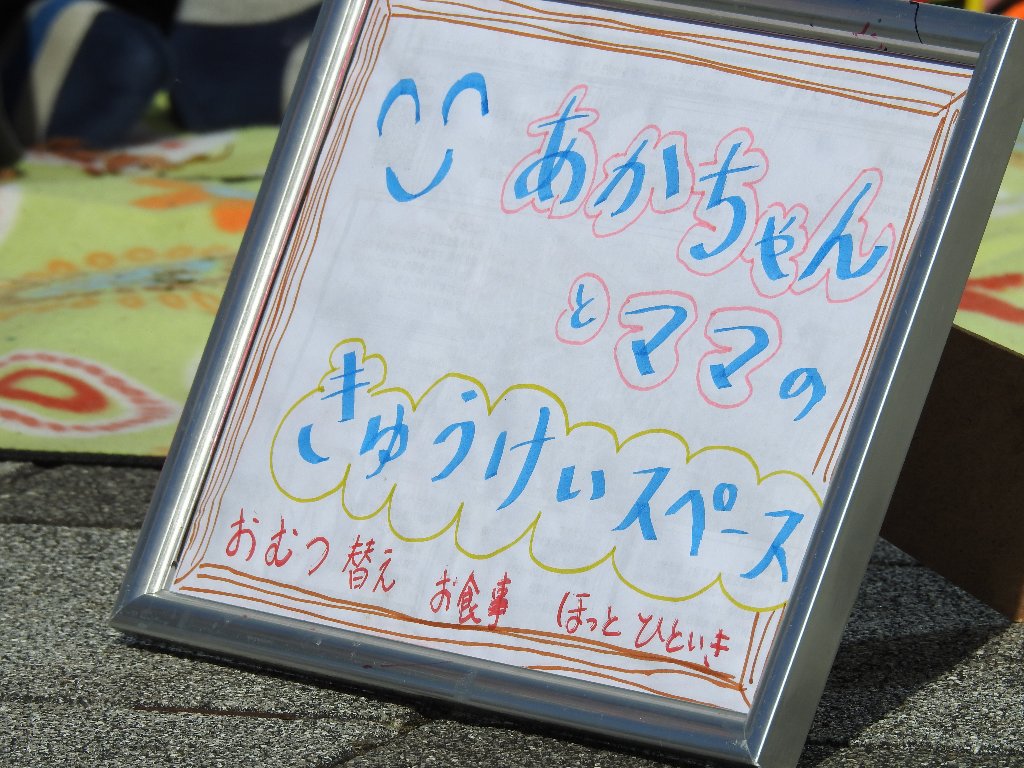 あかちゃん
とママの
きゅうけいスペース
おむつ替え お食事 ほっとひといき